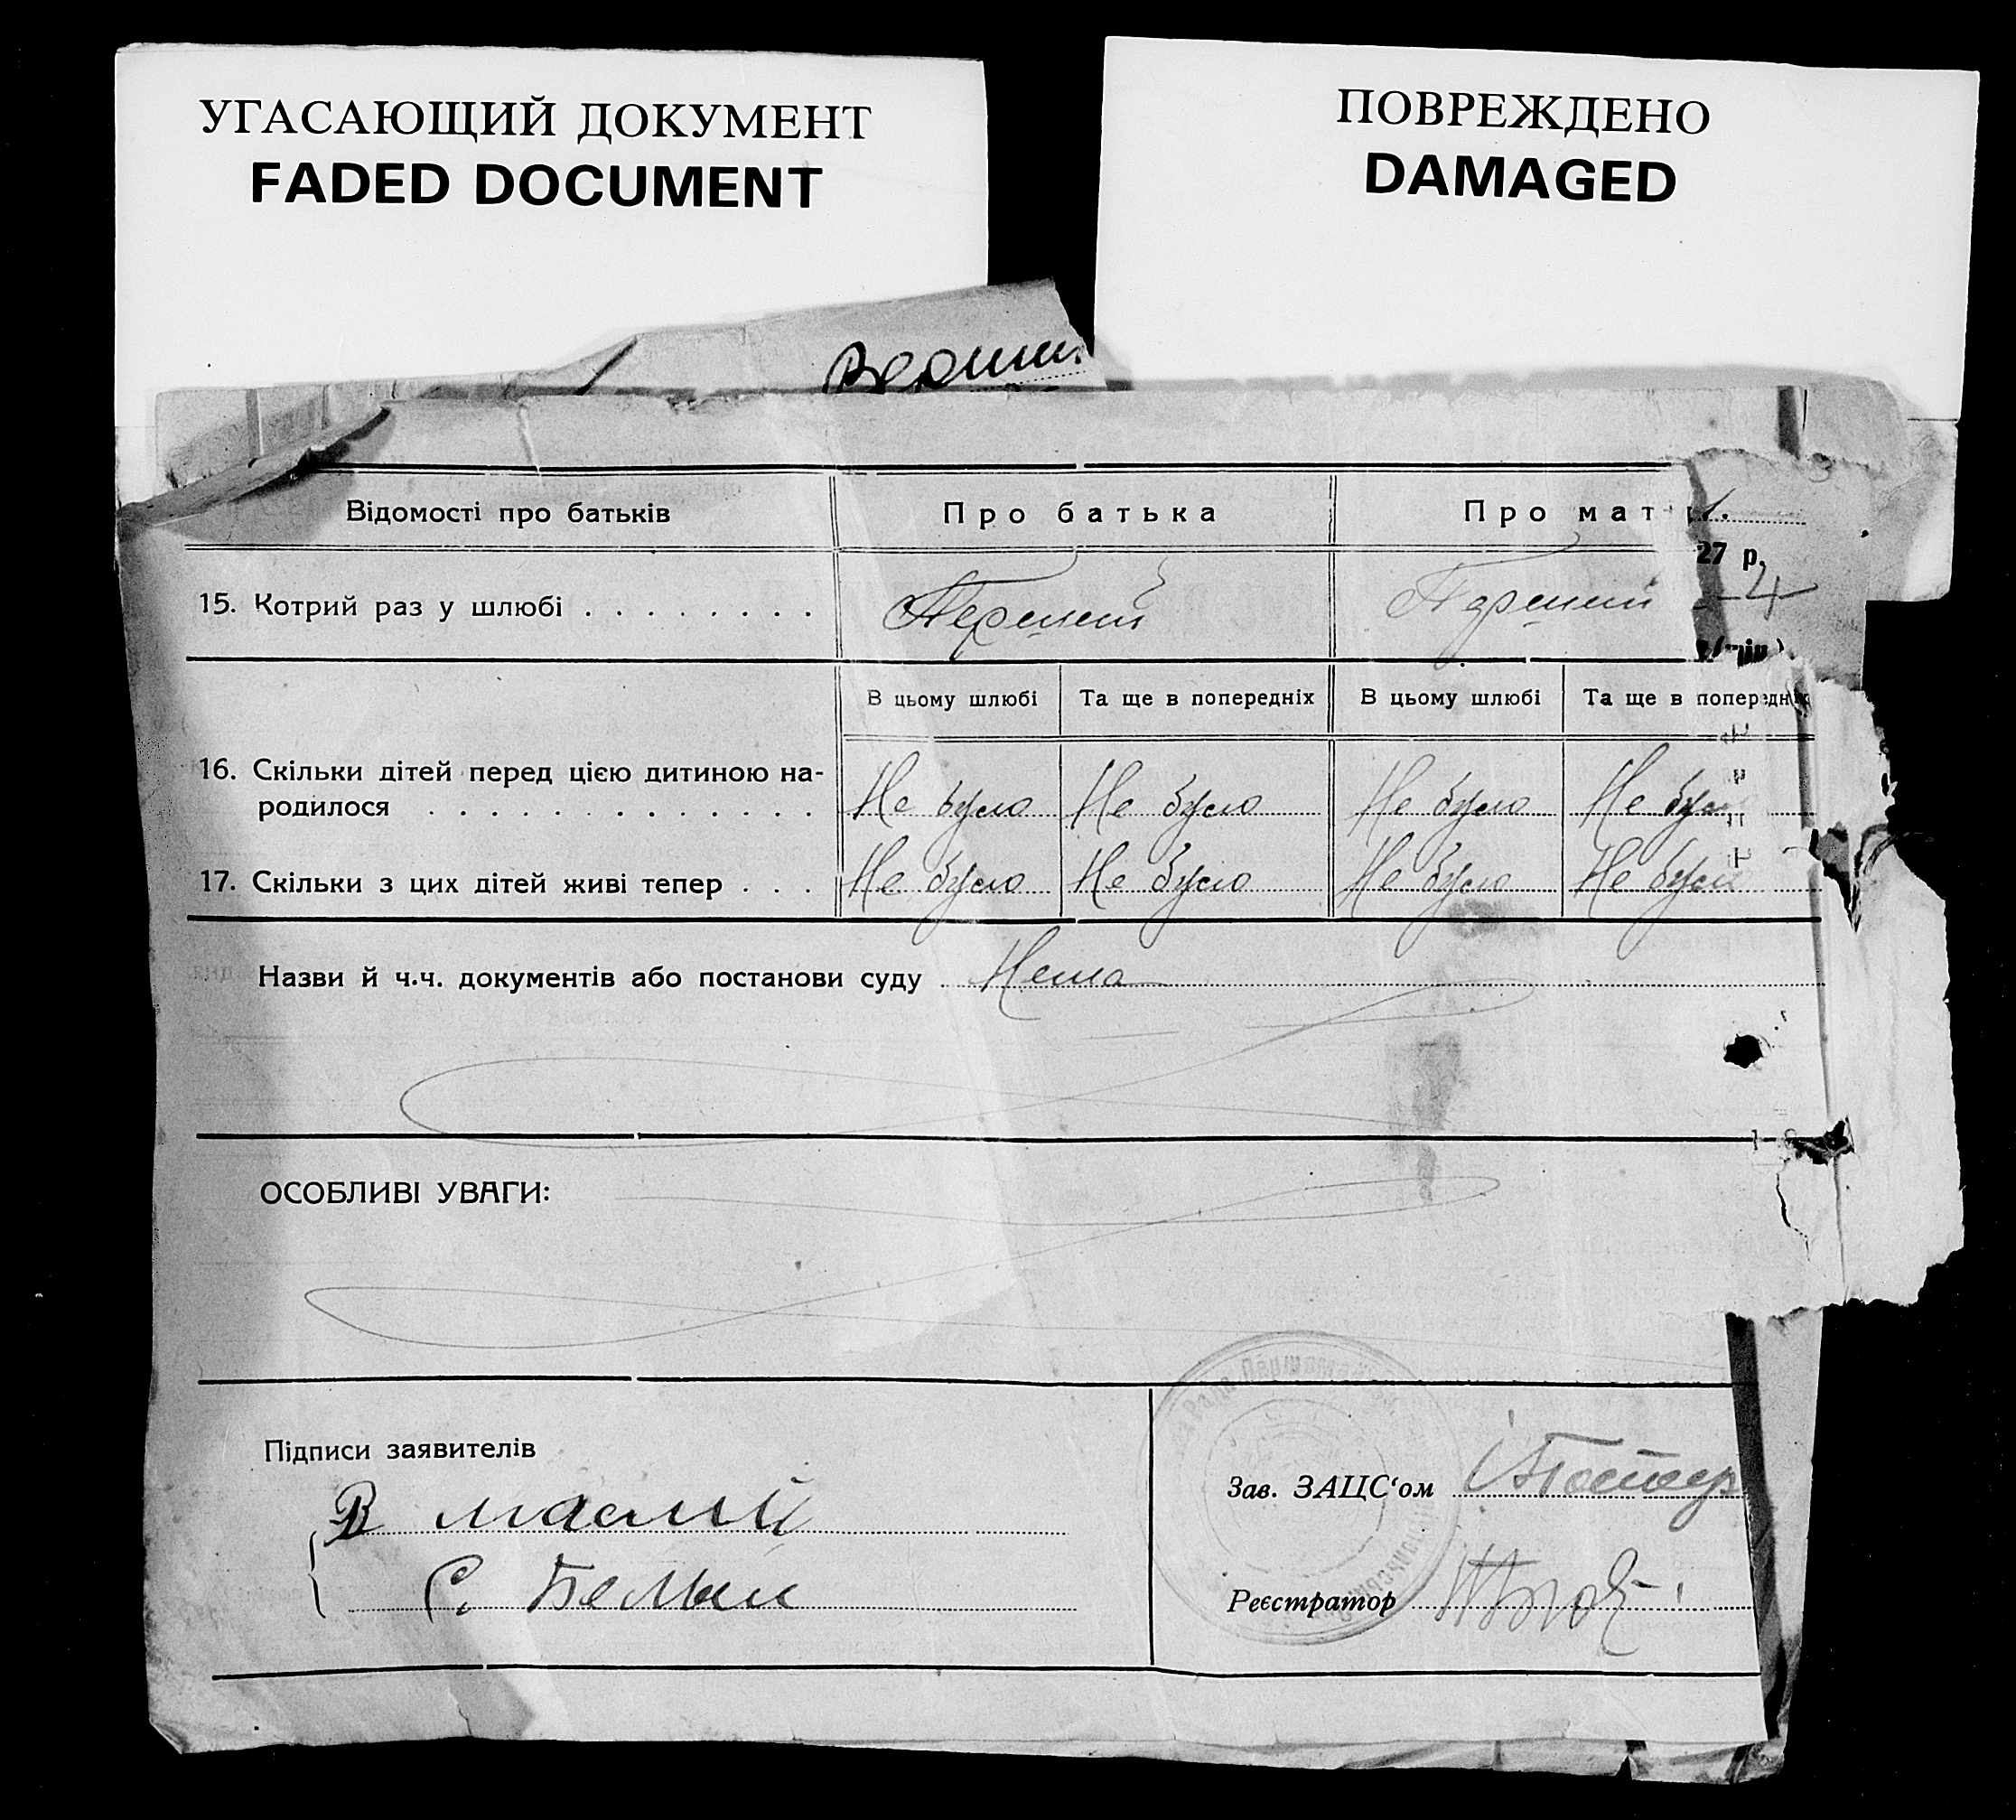 УГАСАЮЩИЙ ДОКУМЕНТ
FADED DOCUMENT
ПОВРЕЖДЕНО
DAMAGED
Відомості про батьків
Про батька
Про мат
27 р.
15. Котрий раз у шлюбі
Перший
Перший
В цьому шлюбі
Та ще в попередніх
В цьому шлюбі
Та ще в попередніх
16. Скільки дітей перед цією дитиною на-
родилося
Не було
Не було
Не було
Не було
17. Скільки з цих дітей живі тепер
Не було
Не було
Не було
Не було
Назви й ч.ч. документів або постанови суду Нема
ОСОБЛИВІ УВАГИ:
Підписи заявителів
С.
Зав. ЗАЦС‘ом
Реєстратор